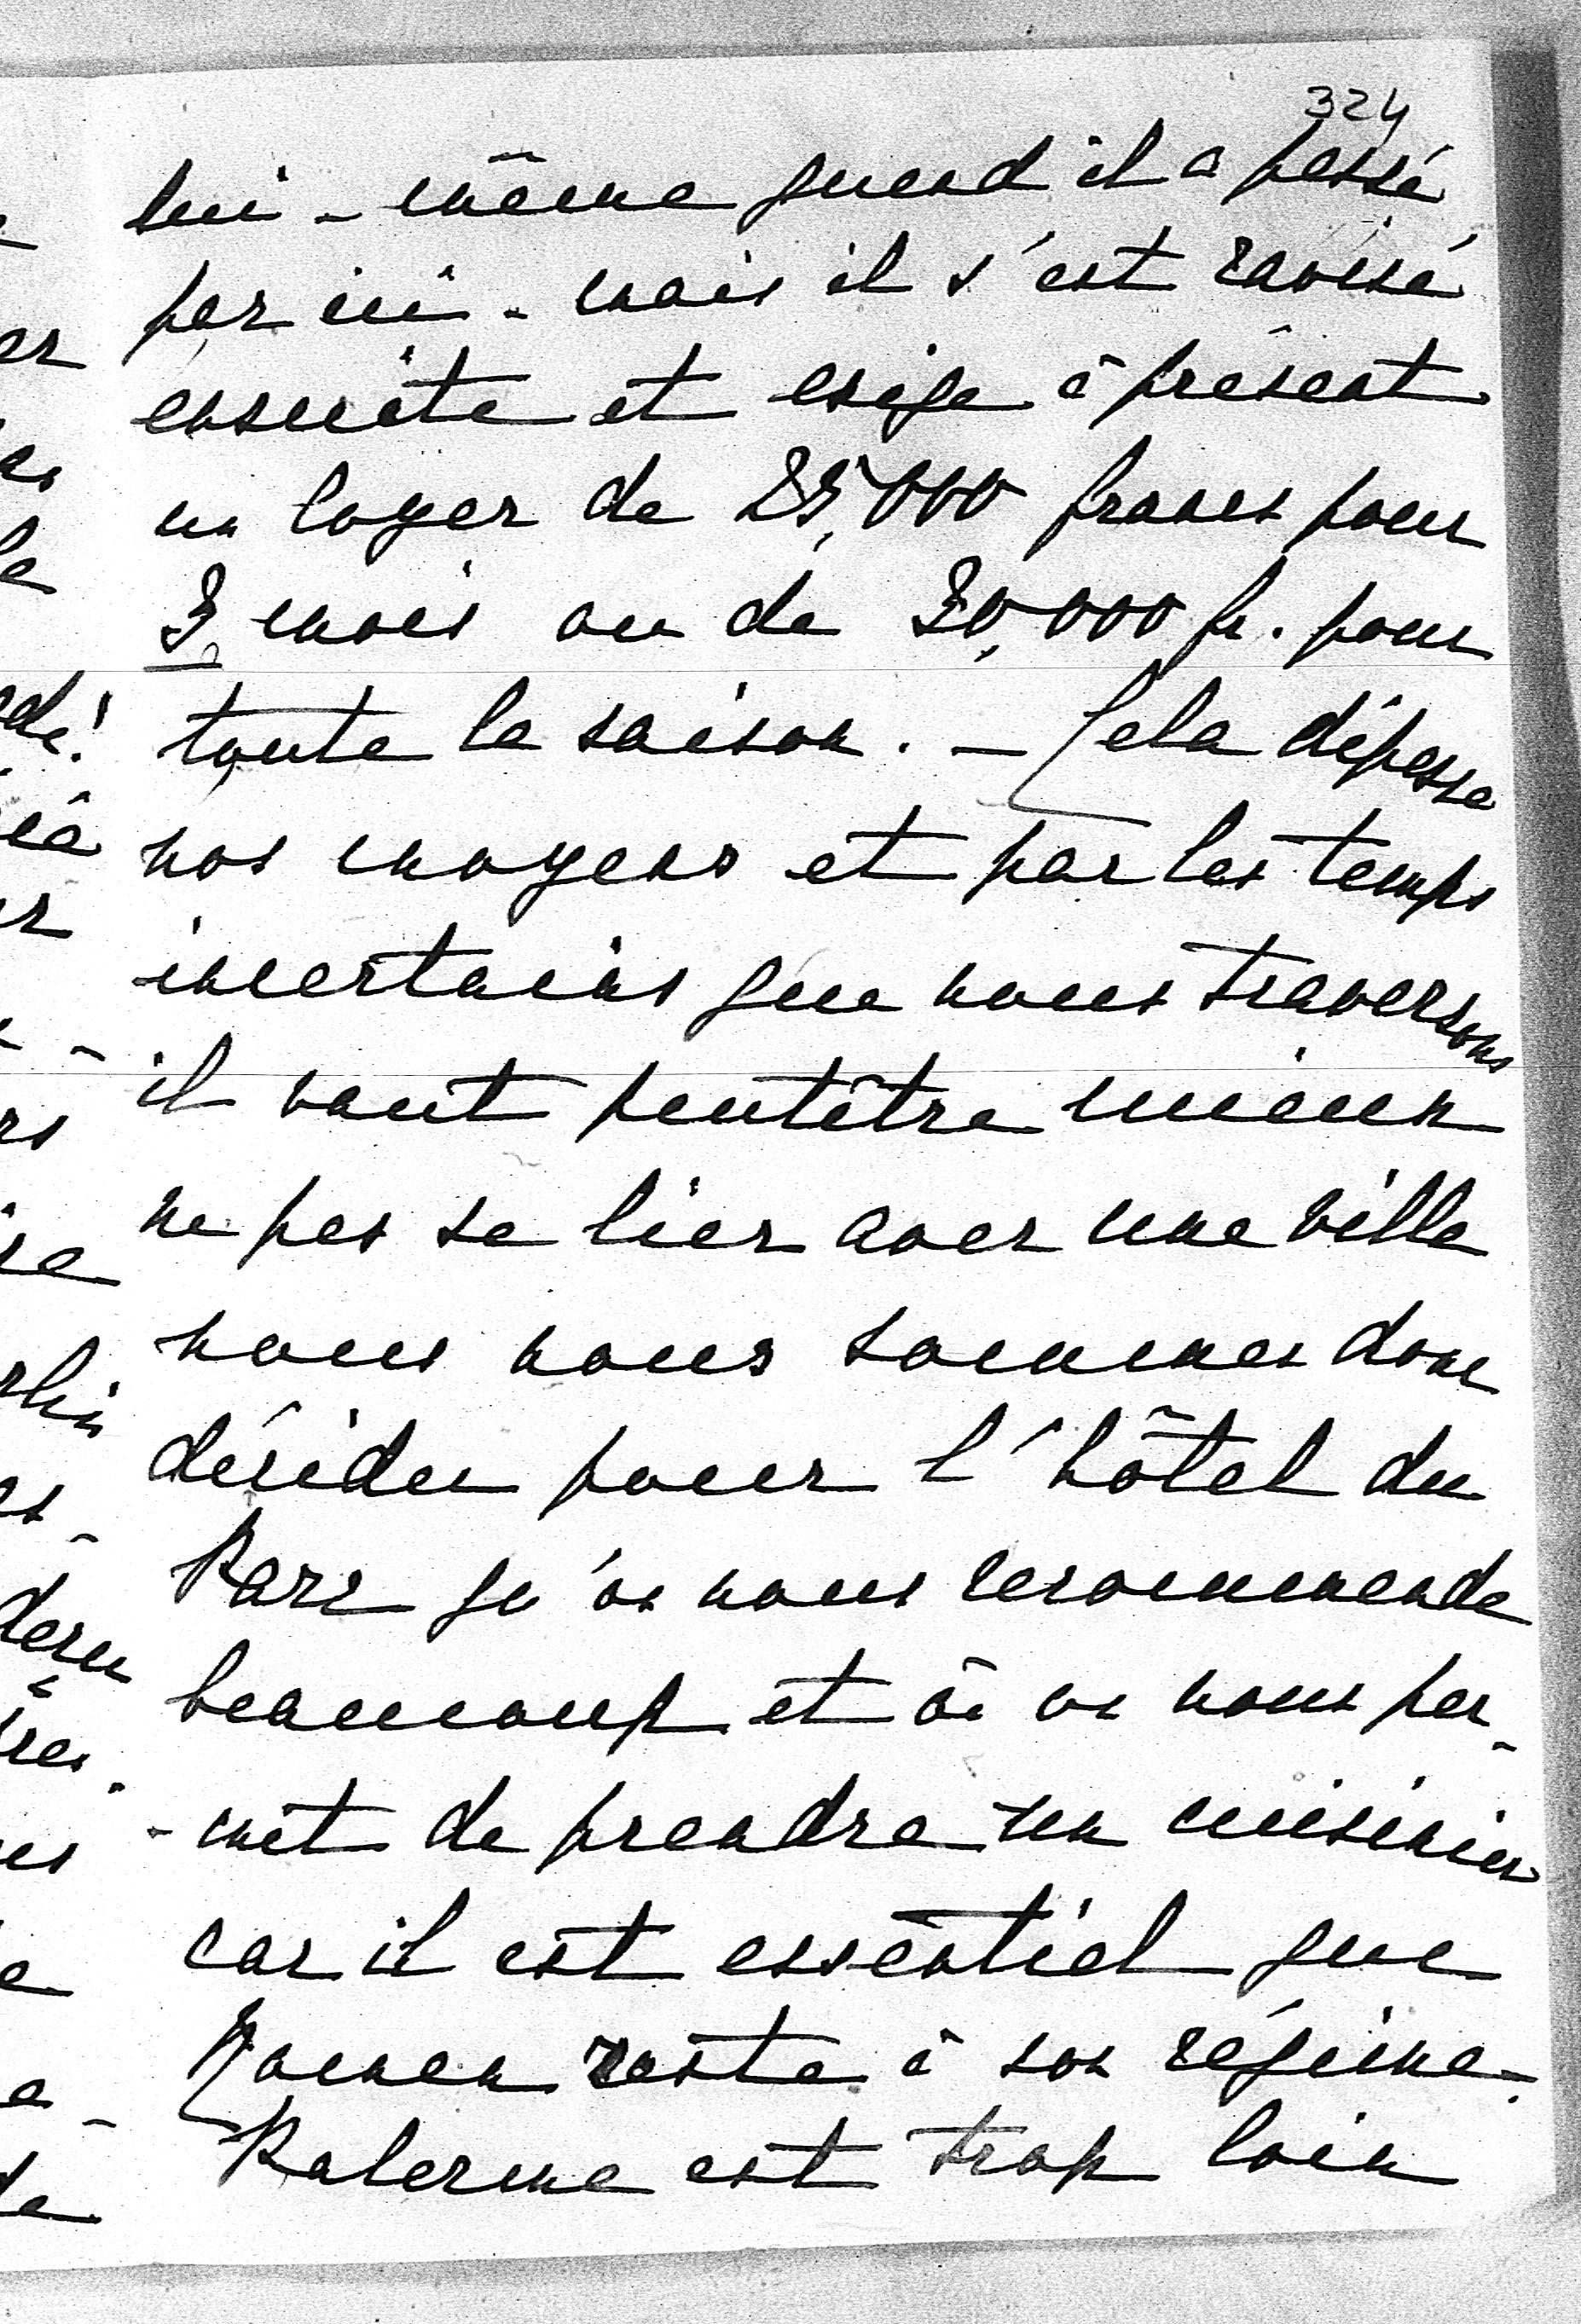 324
lui-même quand il a passé
par ici - mais il s'est ravisé
ensuite et exige à présent
un loyer de 25,000 francs pour
3 mois ou de 30,000 fr. pour
toute la saison. - Cela dépasse
nos moyens et par les temps
incertains que nous traversons
il vaut peutêtre mieux
ne pas se lier avec une villa
nous nous sommes donc
décidés pour l'hôtel du
Parc qu'on nous recommande
beaucoup et où on nous per-
-met de prendre un cuisinier
car il est essentiel que
reste à son régime -
Palerme est trop loin